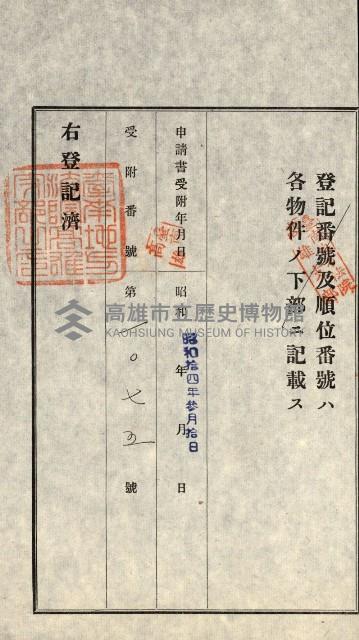 登記番號及順位番號ハ
各物件ノ下部ニ記載ス
申請書受附年月日 昭和 年 月 日
昭和拾四年參月拾日
受附番號 第一〇七五號
右登記濟
高雄市立歷史博物館
KAOHSIUNG MUSEUM OF HISTORY